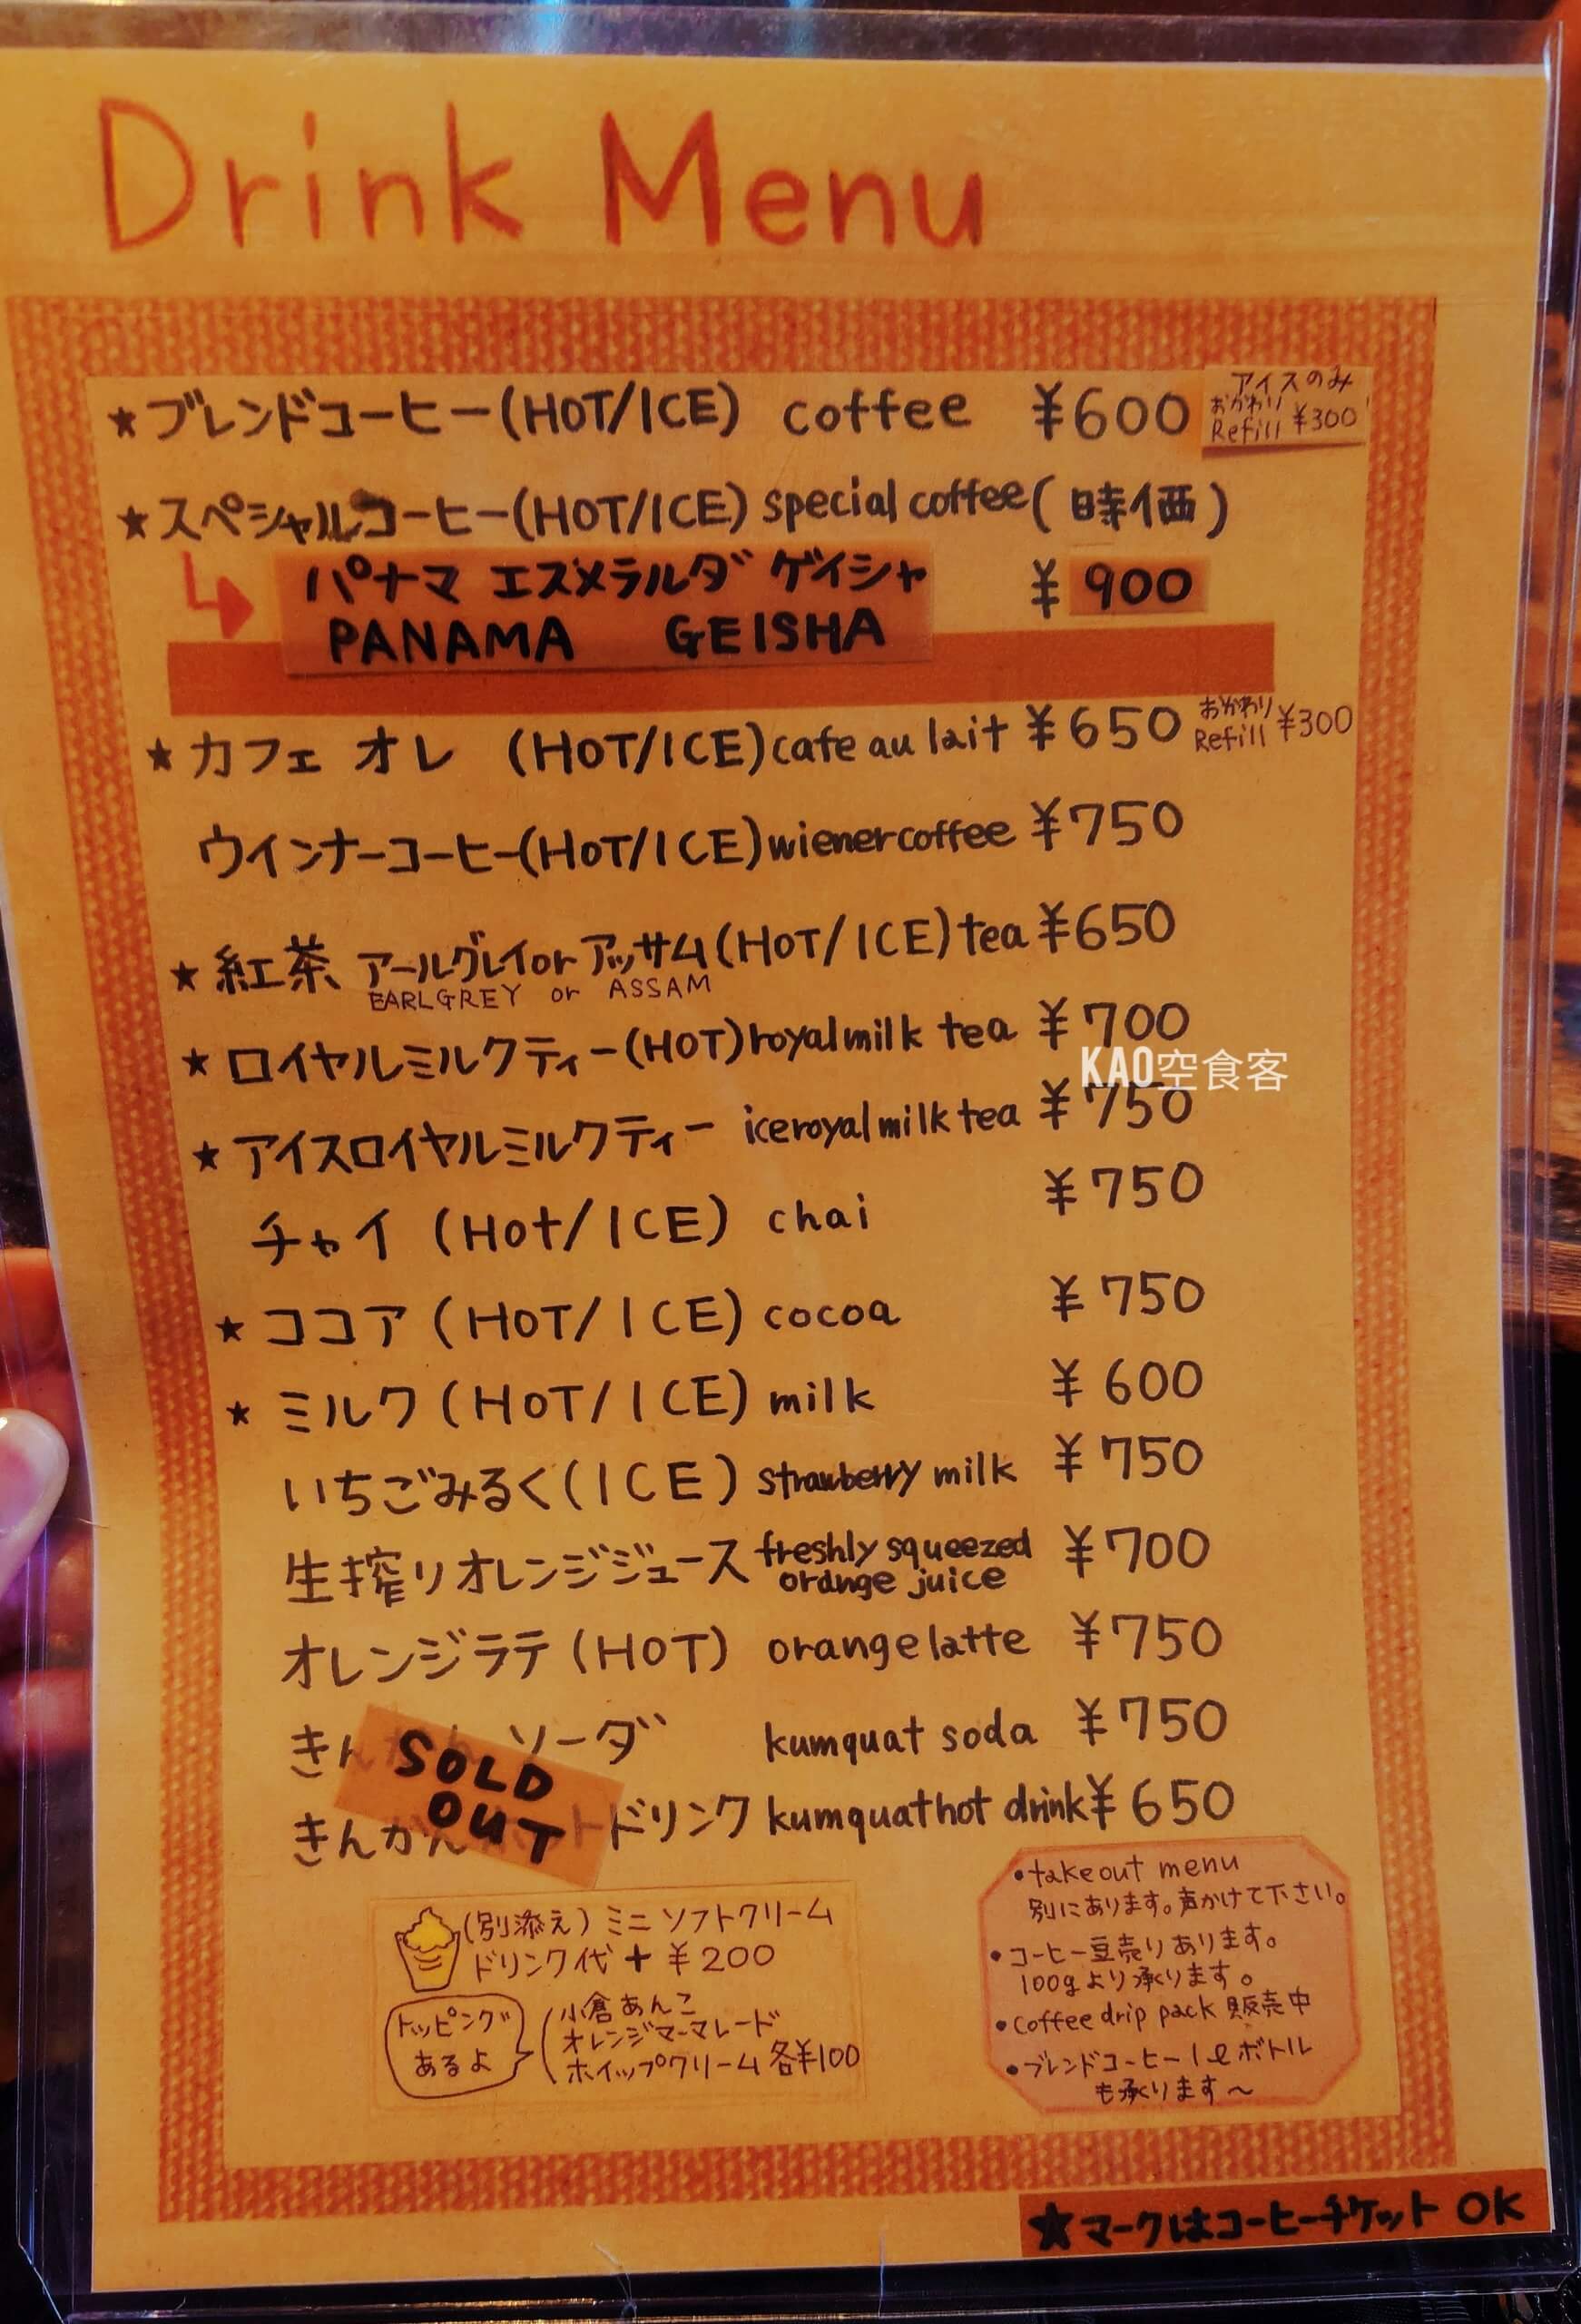 Drink Menu
★ブレンドコーヒー(HOT/ICE) coffee ¥600
アイスのみ
おかわり
Refill ¥300
★スペシャルコーヒー(HOT/ICE) special coffee(時価)
パナマ エスメラルダ ゲイシャ ¥900
PANAMA GEISHA
★カフェ オレ (HOT/ICE) cafe au lait ¥650
おかわり
Refill ¥300
ウインナーコーヒー(HOT/ICE) wiener coffee ¥750
★紅茶 アールグレイor アッサム(HOT/ICE) tea ¥650
EARLGREY or ASSAM
★ロイヤルミルクティー(HOT) royal milk tea ¥700
KAO空食客
★アイスロイヤルミルクティー ice royal milk tea ¥750
チャイ (Hot/ICE) chai ¥750
★ココア (HOT/ICE) cocoa ¥750
★ミルク (HOT/ICE) milk ¥600
いちごみるく(ICE) strawberry milk ¥750
生搾りオレンジジュース freshly squeezed orange juice ¥700
オレンジラテ (HOT) orange latte ¥750
きん ソーダ kumquat soda ¥750
SOLD
OUT
きんかん トドリンク kumquat hot drink ¥650
(別添え) ミニソフトクリーム
ドリンク代 + ¥200
トッピング
あるよ
小倉あんこ
オレンジマーマレード
ホイップクリーム 各¥100
•takeout menu
別にあります。声かけて下さい。
•コーヒー豆売りあります。
100gより承ります。
•Coffee drip pack 販売中
•ブレンドコーヒー1ℓボトル
も承ります～
★マークはコーヒーチケット OK